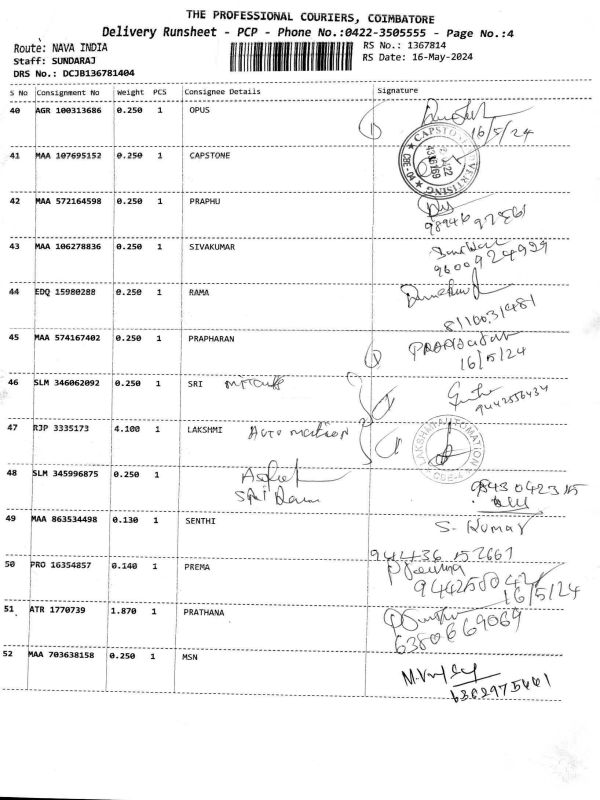 THE PROFESSIONAL COURIERS, COIMBATORE
Delivery Runsheet - PCP - Phone No.:0422-3505555 - Page No.:4
Route: NAVA INDIA RS No.: 1367814
Staff: SUNDARAJ RS Date: 16-May-2024
DRS No.: DCJB136781404
S No Consignment No Weight PCS Consignee Details Signature
40 AGR 100313686 0.250 1 OPUS
16/5/24
41 MAA 107695152 0.250 1 CAPSTONE
42 MAA 572164598 0.250 1 PRAPHU
43 MAA 106278836 0.250 1 SIVAKUMAR
9600924929
44 EDQ 15980288 0.250 1 RAMA
8110031481
45 MAA 574167402 0.250 1 PRAPHARAN
16/5/24
46 SLM 346062092 0.250 1 SRI
47 RJP 3335173 4.100 1 LAKSHMI Automation
LAKSHMI AUTOMATION
CBE-4
48 SLM 345996875 0.250 1
49 MAA 863534498 0.130 1 SENTHI S. Kumar
50 PRO 16354857 0.140 1 PREMA
16/5/24
51 ATR 1770739 1.870 1 PRATHANA
6380669069
52 MAA 703638158 0.250 1 MSN